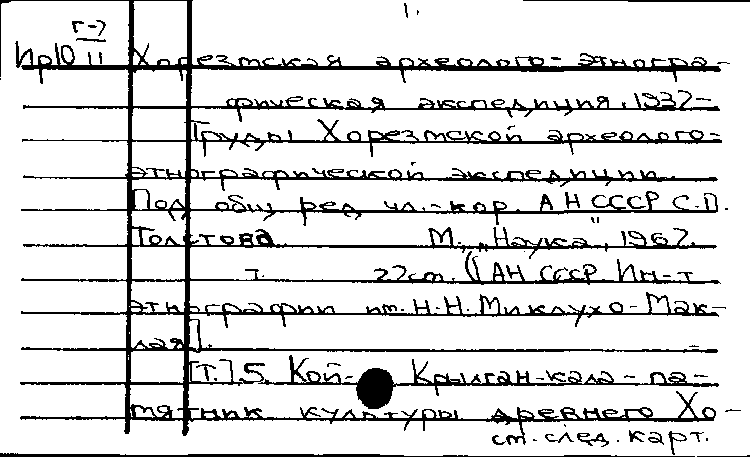 1.
Г-7
Ир10 II Хорезмская археолого-этногра-
фическая экспедиция, 1937-
Труды Хорезмской археолого-
этнографической экспедиции.
Под общ. ред. чл.-кор. АН СССР С.П.
Толстова М., „Наука", 1967.
т. 27см. (АН СССР Ин-т
этнографии им. Н.Н. Миклухо-Мак-
лая].
[Т.]. 5. Кой-Крылган-кала - па-
мятник культуры древнего Хо-
см. след. карт.